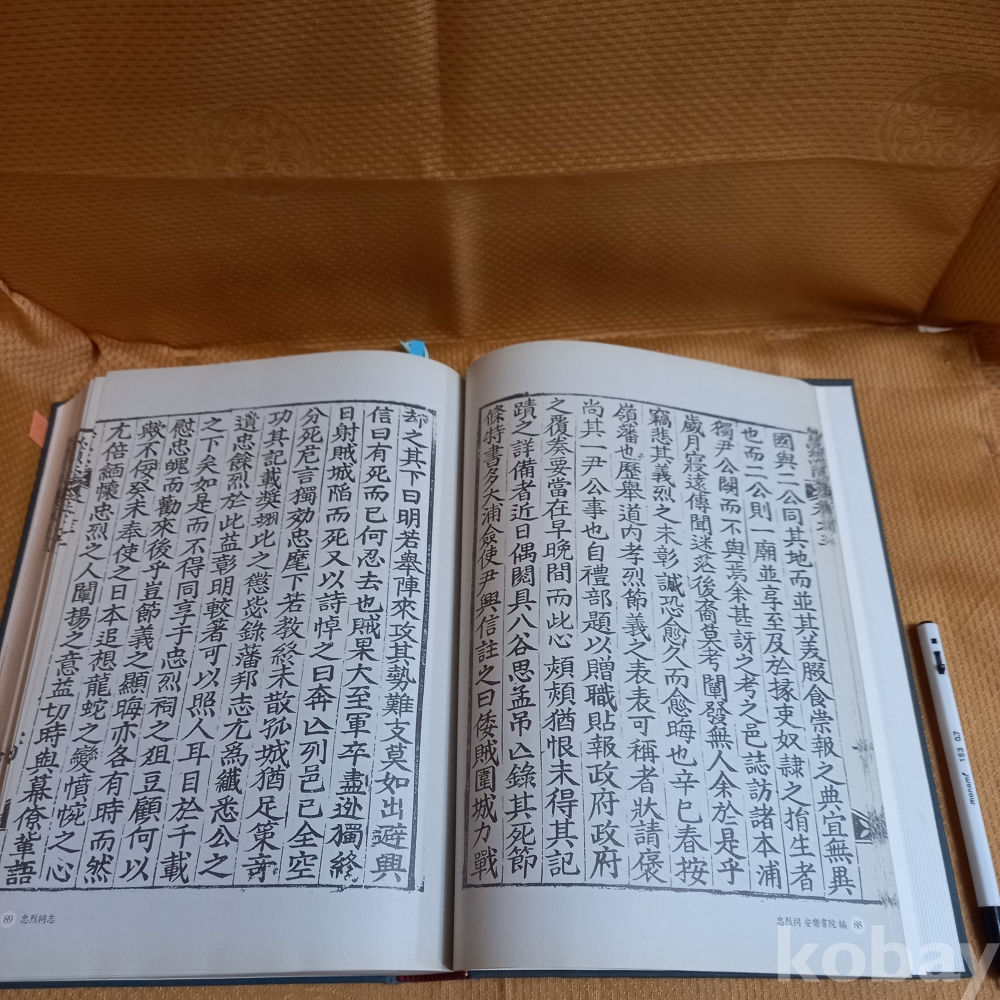 國與二公同其地而並其美腏食崇報之典宜無異
也而二公則 廟並享至及於掾吏奴隷之捐生者
獨尹公闕而不與焉余甚訝之考之邑誌訪諸本浦
歲月寖遠傳聞迷茫後裔莫考闡發無人余於是乎
竊悲其義烈之未彰誠恐愈久而愈晦也辛巳春按
嶺藩也歷舉道内孝烈節義之表表可稱者狀請褒
尚其一尹公事也自禮部題以贈職貼報政府政府
之覆奏要當在早晚間而此心熲熲猶恨未得其記
蹟之詳備者近日偶閱具八谷思孟吊亾錄其死節
條特書多大浦僉使尹興信註之曰倭賊圍城力戰
却之其下曰明若舉陣來攻其勢難支莫如出避興
信曰有死而已何忍去也賊果大至軍卒盡迯獨終
日射賊城陷而死又以詩悼之曰奔亾列邑已全空
分死危言獨効忠麾下若教終未散孤城猶足策竒
功其記載奬翊此之懲毖錄藩邦志尤爲纖悉公之
遺忠餘烈於此益彰明較著可以照人耳目於千載
之下矣如是而不得同享于忠烈祠之俎豆顧何以
慰忠魄而勸來後乎豈節義之顯晦亦各有時而然
歟不佞癸未奉使之日本追想龍蛇之變憤惋之心
尤倍緬懷忠烈之人闡揚之意益切時與幕僚輩語
忠烈祠 安樂書院 編 88
89 忠烈祠志
monami 153 0.7
kobay